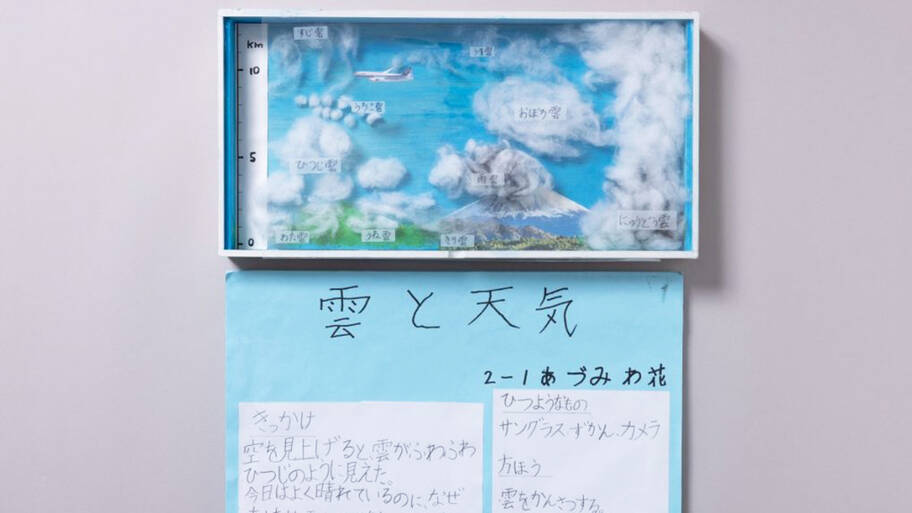 すじ雲
km
うす雲
10
うろこ雲
おぼろ雲
ひつじ雲
5
雨雲
にゅうどう雲
わた雲
うね雲
きり雲
0
雲と天気
2-1 あづみ わ花
きっかけ
空を見上げると、雲がふわふわ
ひつじのように見えた。
今日はよく晴れているのに、なぜ
ひつようなもの
サングラス、ずかん、カメラ
方ほう
雲をかんさつする。